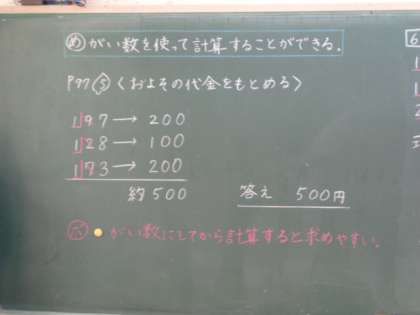 め がい数を使って計算することができる.
P97 5 〈およその代金をもとめる〉
197→200
128→100
173→200
約500
答え 500円
がい数にしてから計算すると求めやすい.
6